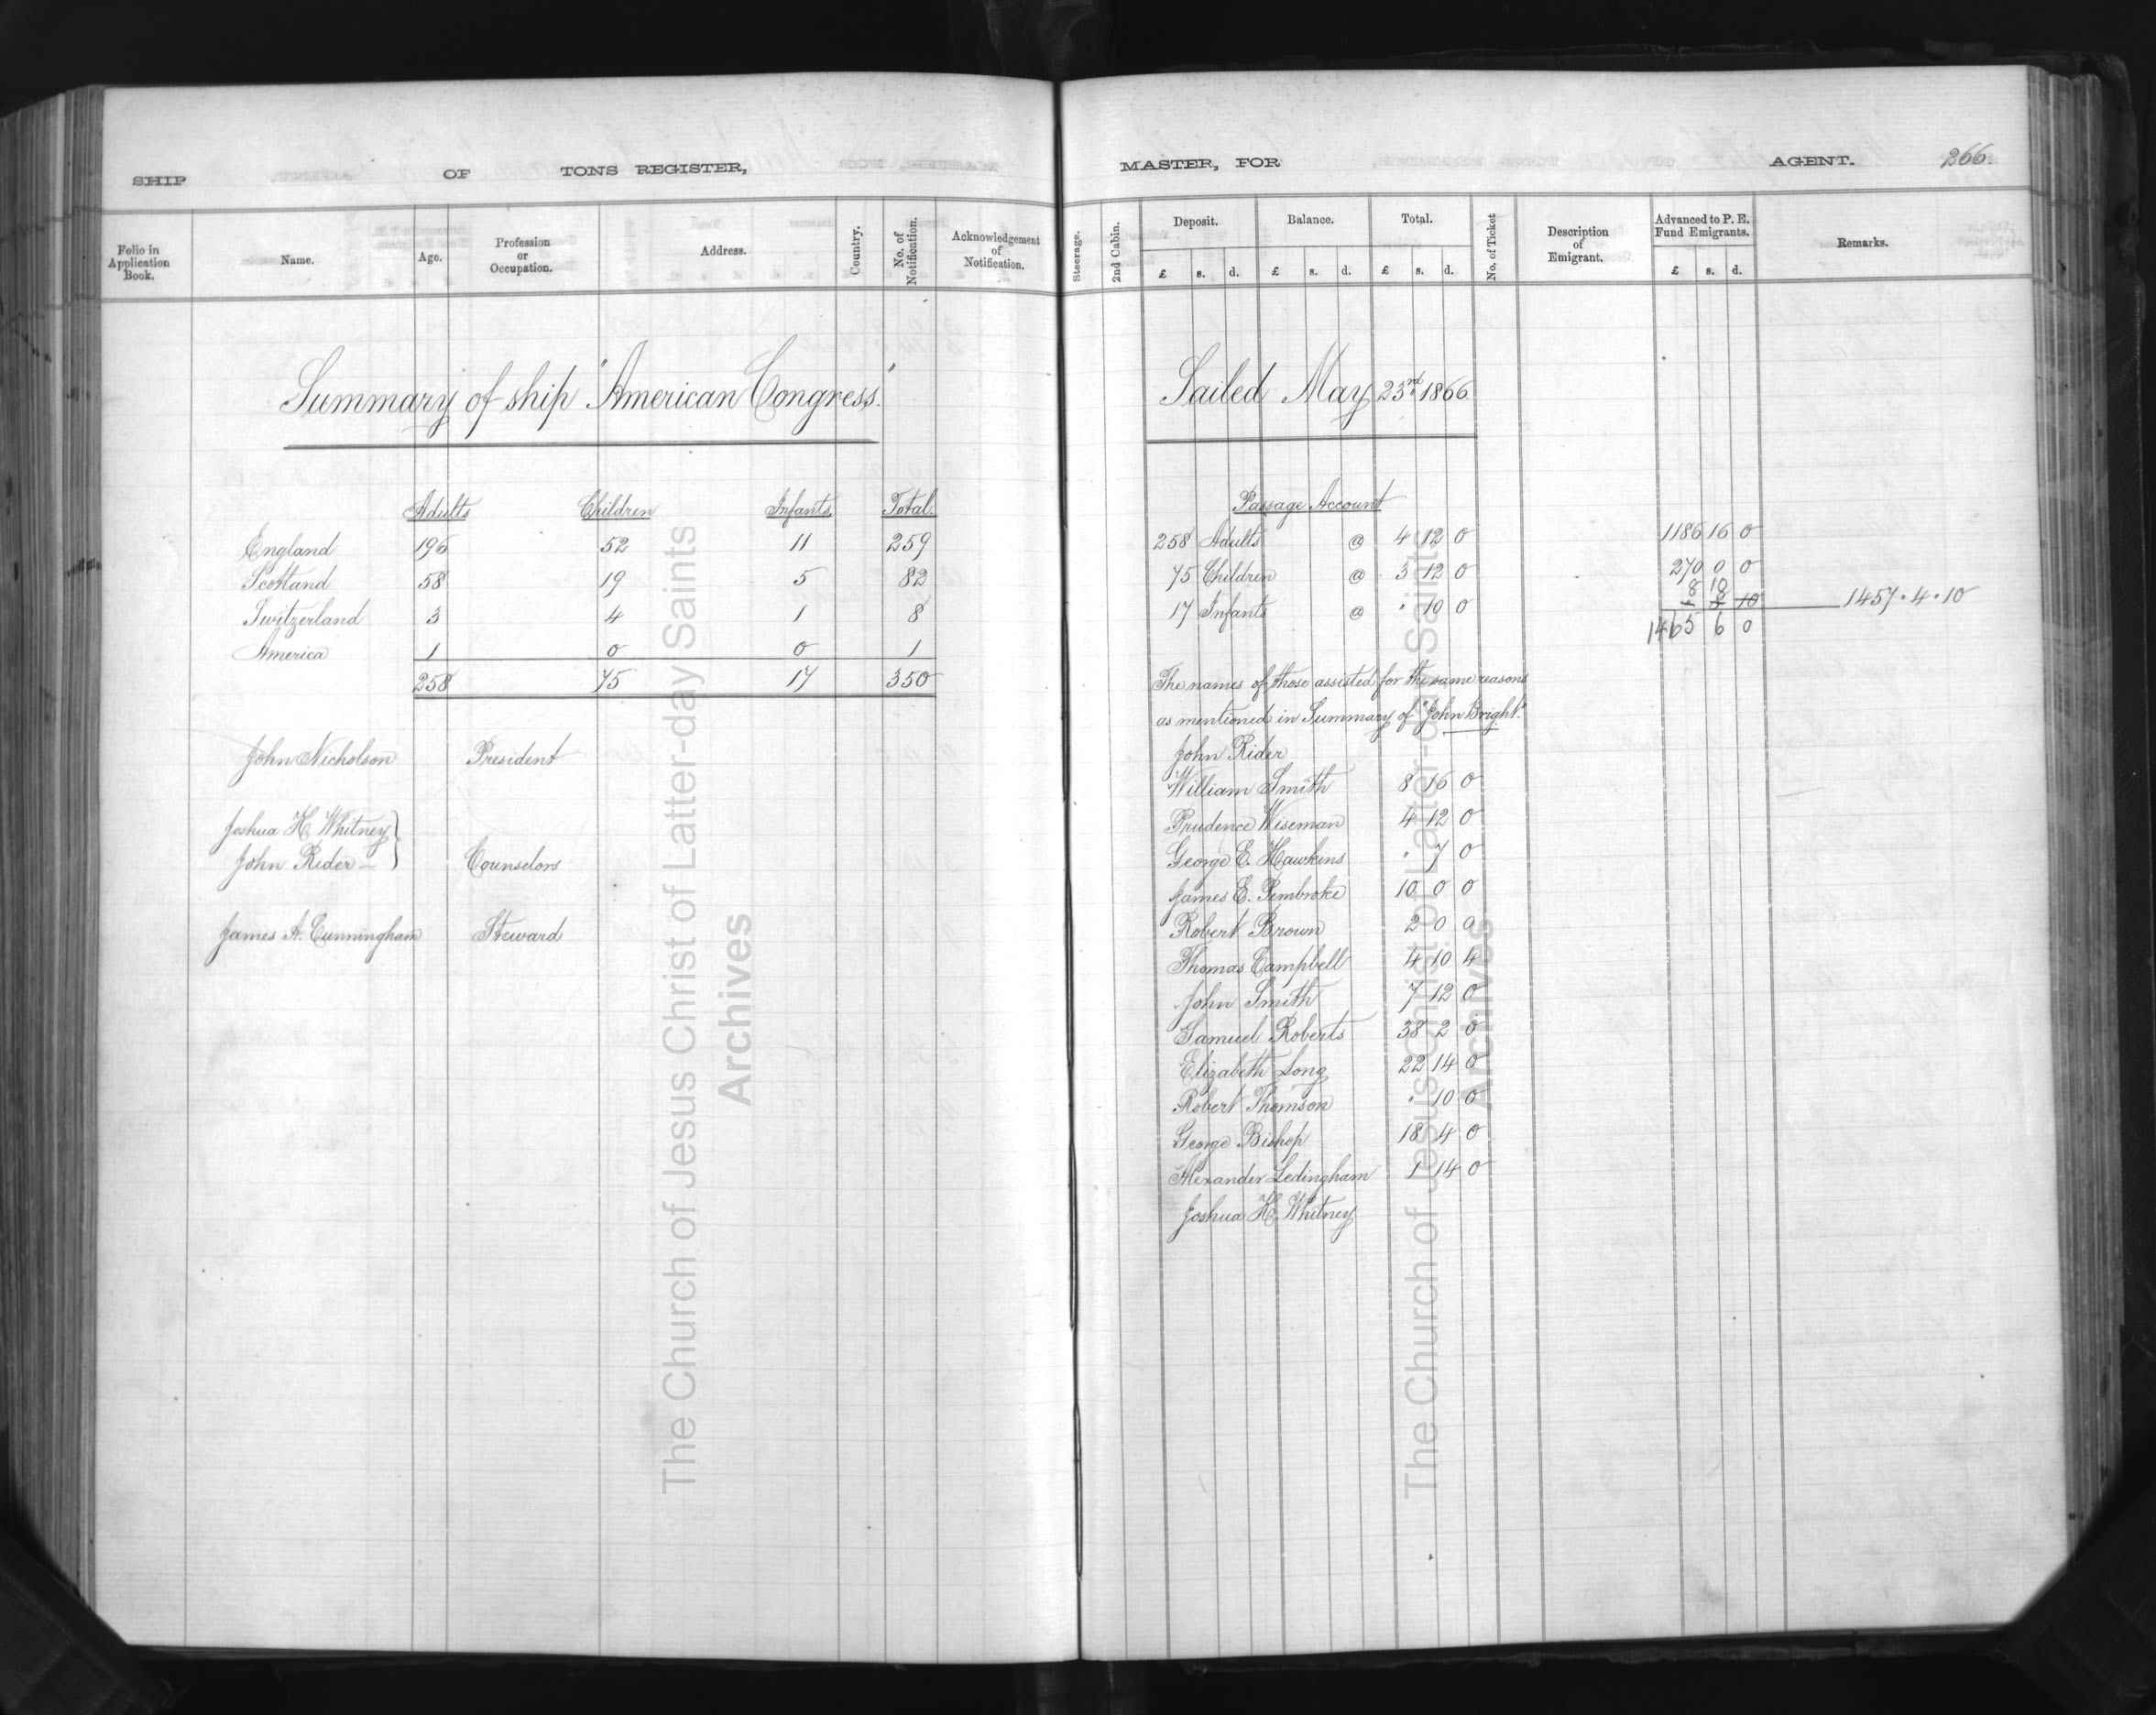 SHIP OF TONS REGISTER, MASTER, FOR AGENT. 266.
Folio in Application Book. Name. Age. Profession or Occupation. Address. Country. No. of Notification. Acknowledgement of Notification. Steerage. 2nd Cabin. Deposit. Balance. Total. No. of Ticket Description of Emigrant. Advanced to P. E. Fund Emigrants. Remarks.
£ s. d. £ s. d. £ s. d. £ s. d.
Summary of ship "American Congress."
Adults Children Infants Total.
England 196 52 11 259
Scotland 58 19 5 82
Switzerland 3 4 1 8
America 1 0 0 1
258 75 17 350
John Nicholson President
Joshua K. Whitney }
John Rider — } Counselors
James A. Cunningham Steward
Sailed May 23rd 1866
Passage Account
258 Adults @ 4 12 0 1186 16 0
75 Children @ 3 12 0 270 0 0
8 10
17 Infants @ " 10 0 10 1457.4.10
1465 6 0
The names of those assisted for the same reasons
as mentioned in Summary of "John Bright."
John Rider
William Smith 8 16 0
Prudence Wiseman 4 12 0
George E. Hawkins " 7 0
James E. Pembroke 10 0 0
Robert Brown 2 0 0
Thomas Campbell 4 10 4
John Smith 7 12 0
Samuel Roberts 38 2 0
Elizabeth Long 22 14 0
Robert Thomson " 10 0
George Bishop 18 4 0
Alexander Ledingham 1 14 0
Joshua K. Whitney
The Church of Jesus Christ of Latter-day Saints
Archives
The Church of Jesus Christ of Latter-day Saints
Archives